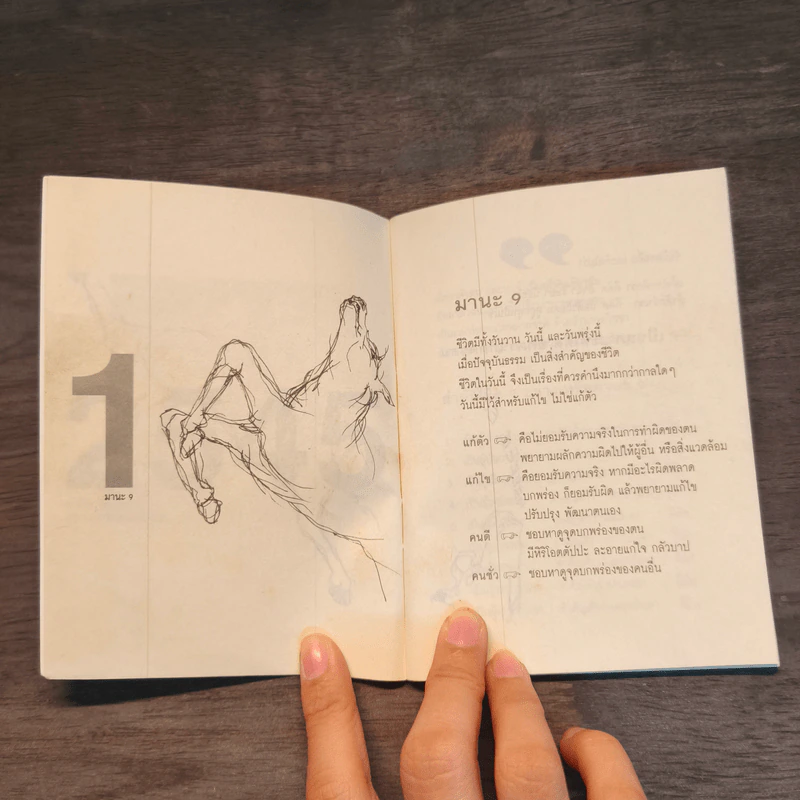 1
มานะ 9
มานะ 9
ชีวิตมีทั้งวันวาน วันนี้ และวันพรุ่งนี้
เมื่อปัจจุบันธรรม เป็นสิ่งสำคัญของชีวิต
ชีวิตในวันนี้ จึงเป็นเรื่องที่ควรคำนึงมากกว่ากาลใดๆ
วันนี้มีไว้สำหรับแก้ไข ไม่ใช่แก้ตัว
แก้ตัว คือไม่ยอมรับความจริงในการทำผิดของตน
พยายามผลักความผิดไปให้ผู้อื่น หรือสิ่งแวดล้อม
แก้ไข คือยอมรับความจริง หากมีอะไรผิดพลาด
บกพร่อง ก็ยอมรับผิด แล้วพยายามแก้ไข
ปรับปรุง พัฒนาตนเอง
คนดี ชอบหาดูจุดบกพร่องของตน
มีหิริโอตตัปปะ ละอายแก่ใจ กลัวบาป
คนชั่ว ชอบหาดูจุดบกพร่องของคนอื่น